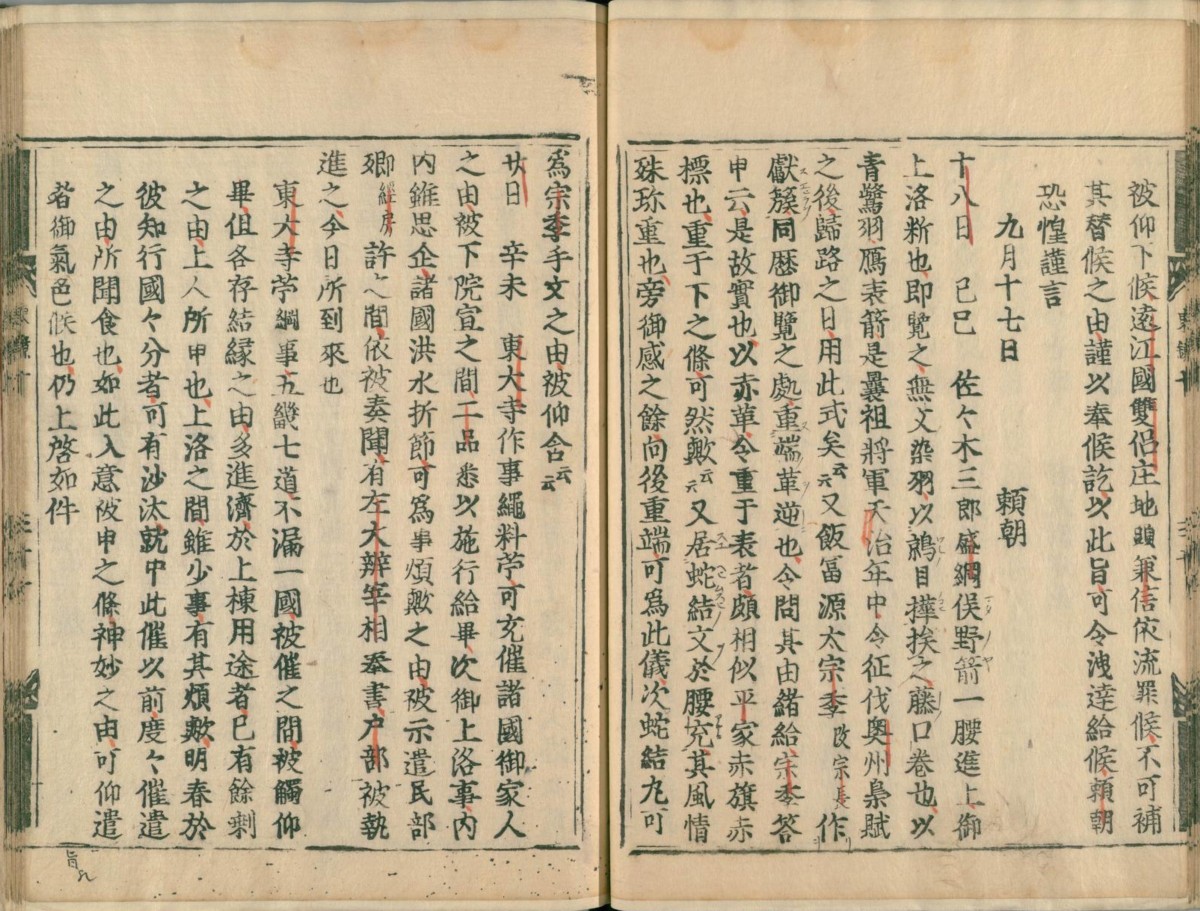 被仰下候遠江國雙侶庄地頭兼信依流罪候不可補
其替候之由謹以奉候訖以此旨可令洩達給候頼朝
恐惶謹言
九月十七日　頼朝
十八日　己巳　佐々木三郎盛綱俣野箭一腰進上御
上洛料也即覽之無文染羽以鵜目樺挨之藤口巻也以
青鷺羽鴈表箭是曩祖將軍天治年中令征伐奥州梟賊
之後歸路之日用此式矣云々又飯冨源太宗季改宗長作
獻簇同歴御覽之處重端革逆也今問其由緒給宗季答
申云是故實也以赤革令重于表者頗相似平家赤旗赤
標也重于下之條可然歟云々又居蛇結文於腰充其風情
殊珎重也旁御感之餘向後重端可爲此儀次蛇結丸可
爲宗季手文之由被仰含云云
廿日　辛未　東大寺作事繩料苧可充催諸國御家人
之由被下院宣之間二品悉以施行給畢次御上洛事内
内雖思企諸國洪水折節可爲事煩歟之由被示遣民部
卿經房許之間依被奏聞有左大辨宰相奉書戸部被執
進之今日所到來也
東大寺苧綱事五畿七道不漏一國被催之間被觸仰
畢但各存結縁之由多進濟於上棟用途者已有餘剩
之由上人所申也上洛之間雖少事有其煩歟明春於
彼知行國々分者可有沙汰就中此催以前度々催遣
之由所聞食也如此入意被申之條神妙之由可仰遣
者御氣色候也仍上啓如件